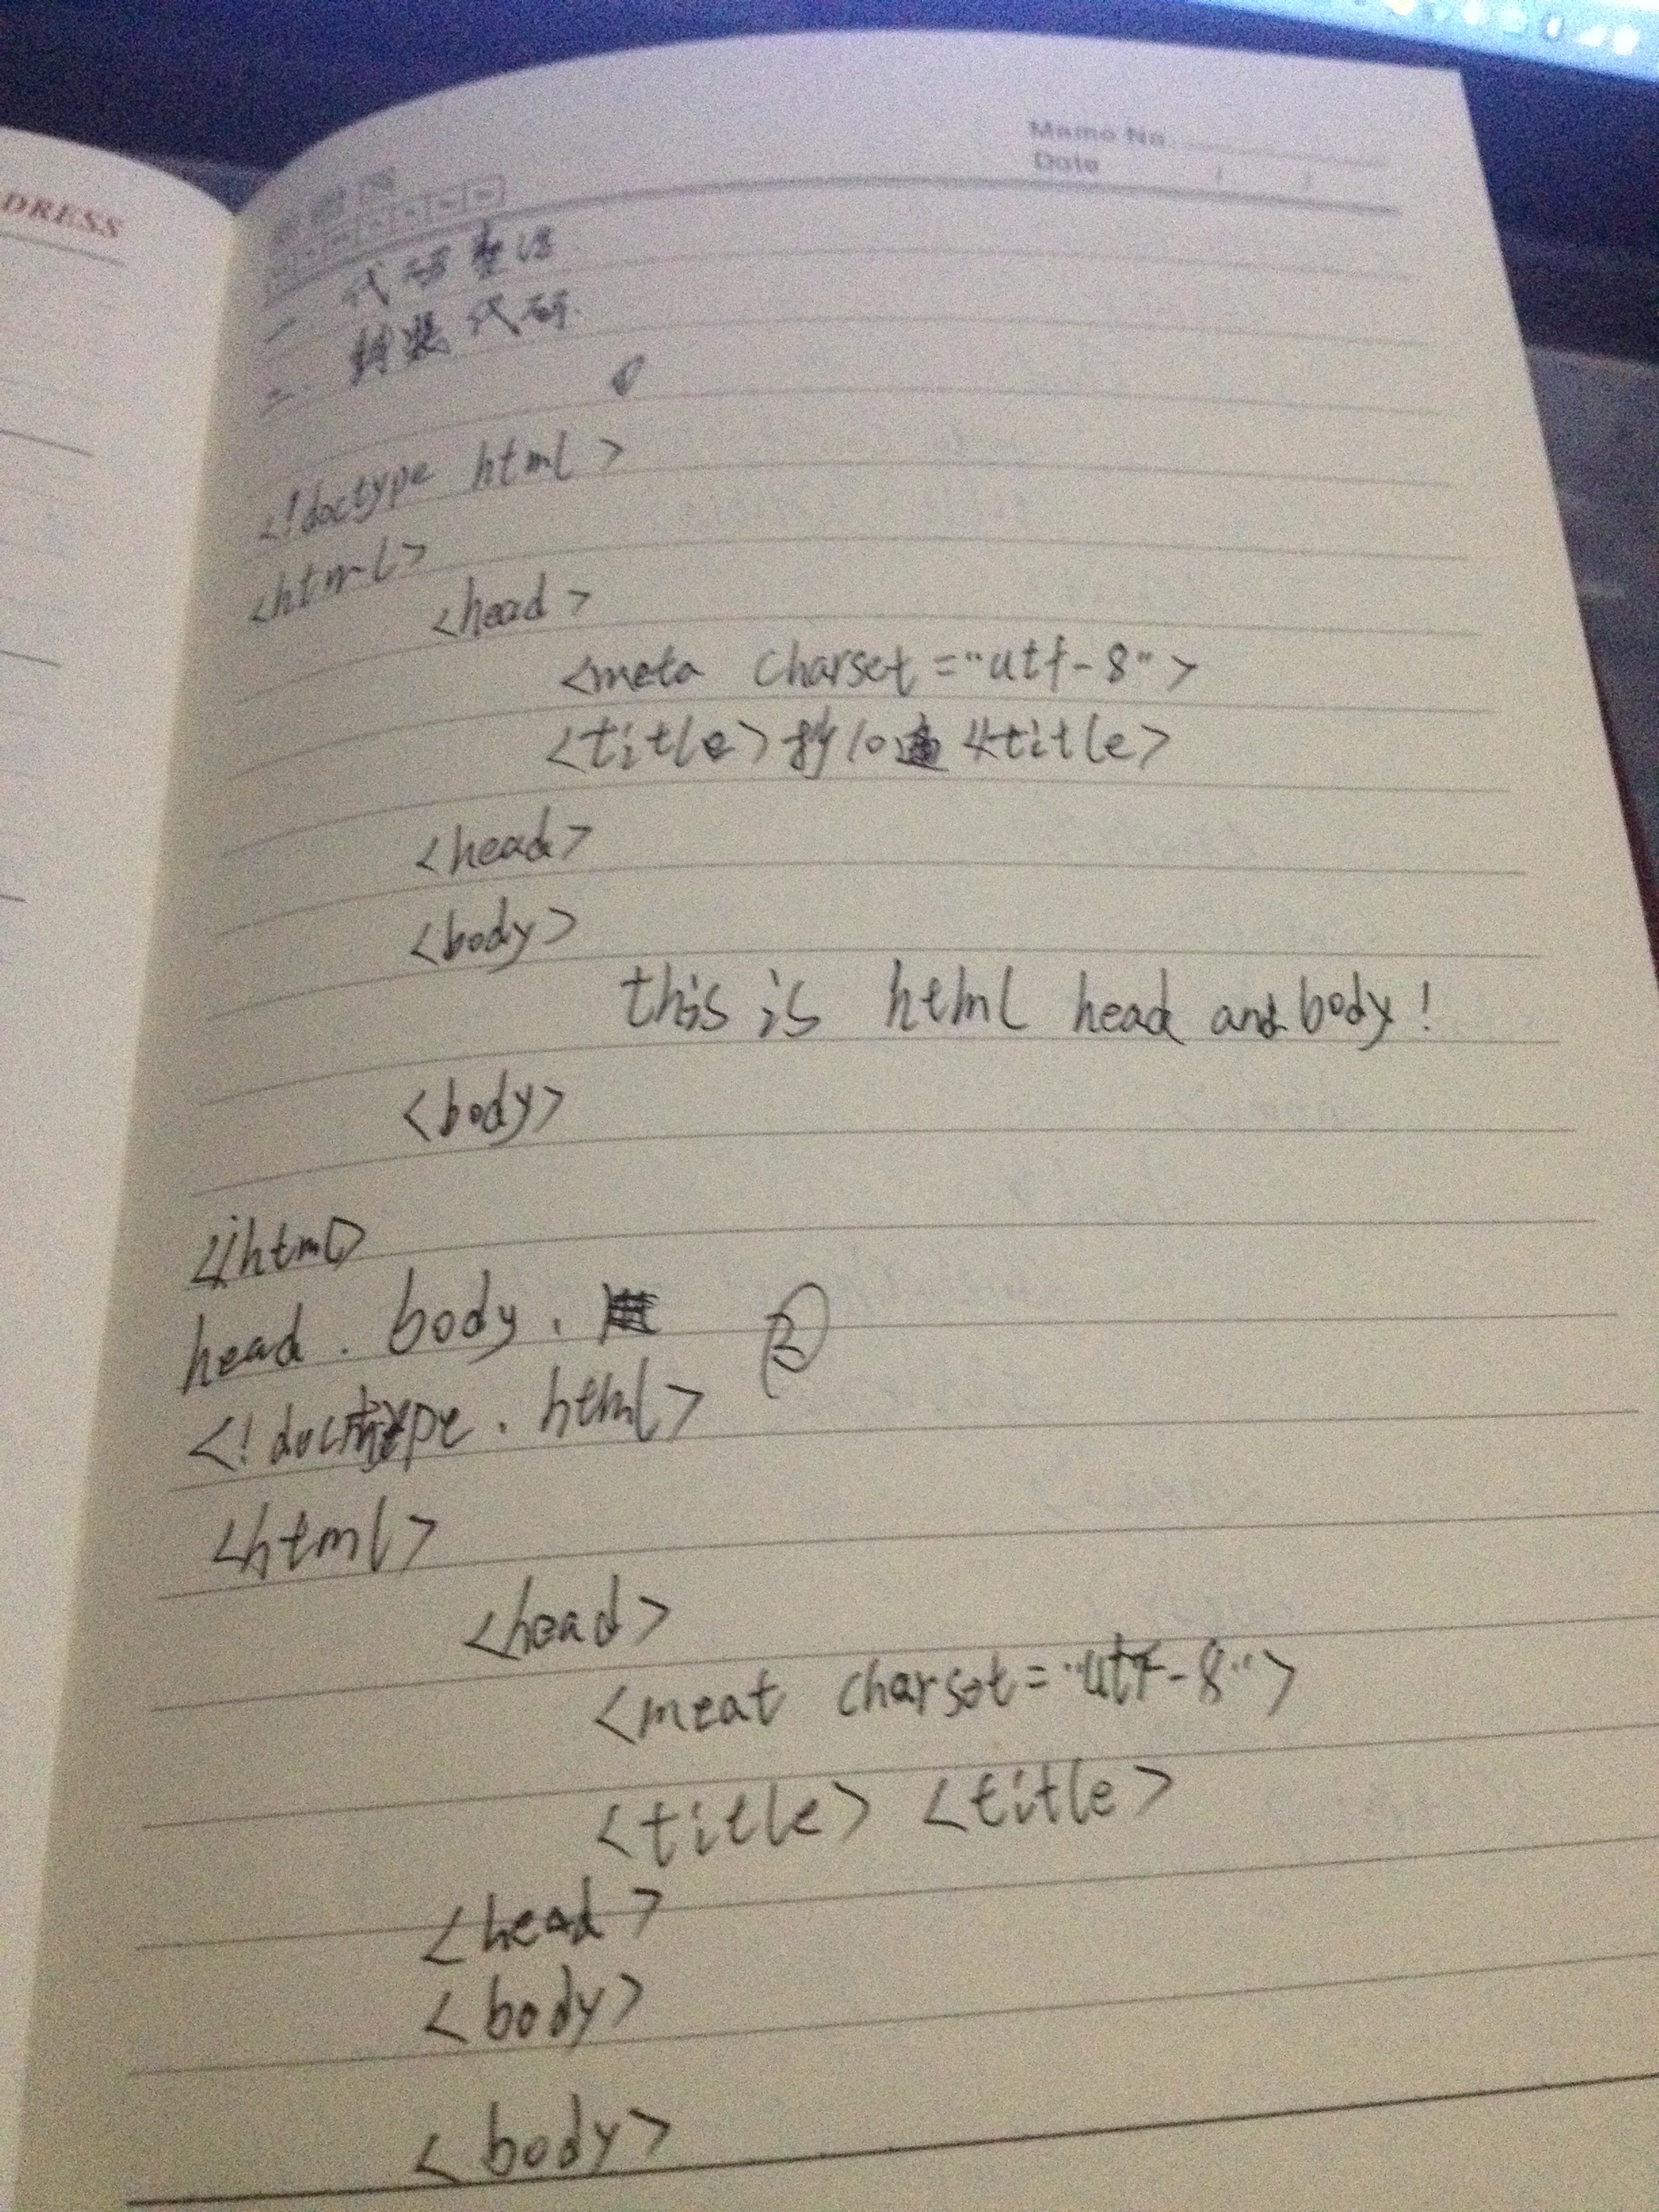 DRESS
Memo No.
Date / /
一 代码整洁
二. 封装代码.
<!doctype html>
<html>
<head>
<meta charset="utf-8">
<title>抄10遍</title>
<head>
<body>
this is html head and body!
<body>
</html>
head. body.
②
<!doctype. html>
<html>
<head>
<meat charset="utf-8">
<title> <title>
<head>
<body>
<body>